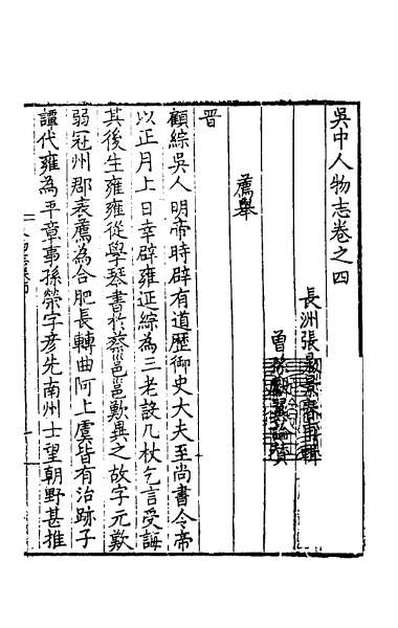 吳中人物志卷之四
長洲張
薦舉
晉
顧綜吳人明帝時辟有道歷御史大夫至尚書令帝
以正月上日幸辟雍延綜為三老設几杖乞言受誨
其後生雍雍從學琴書於蔡邕邕歎異之故字元歎
弱冠州郡表薦為合肥長轉曲阿上虞皆有治跡子
代雍為平章事孫榮字彥先南州士望朝野甚推